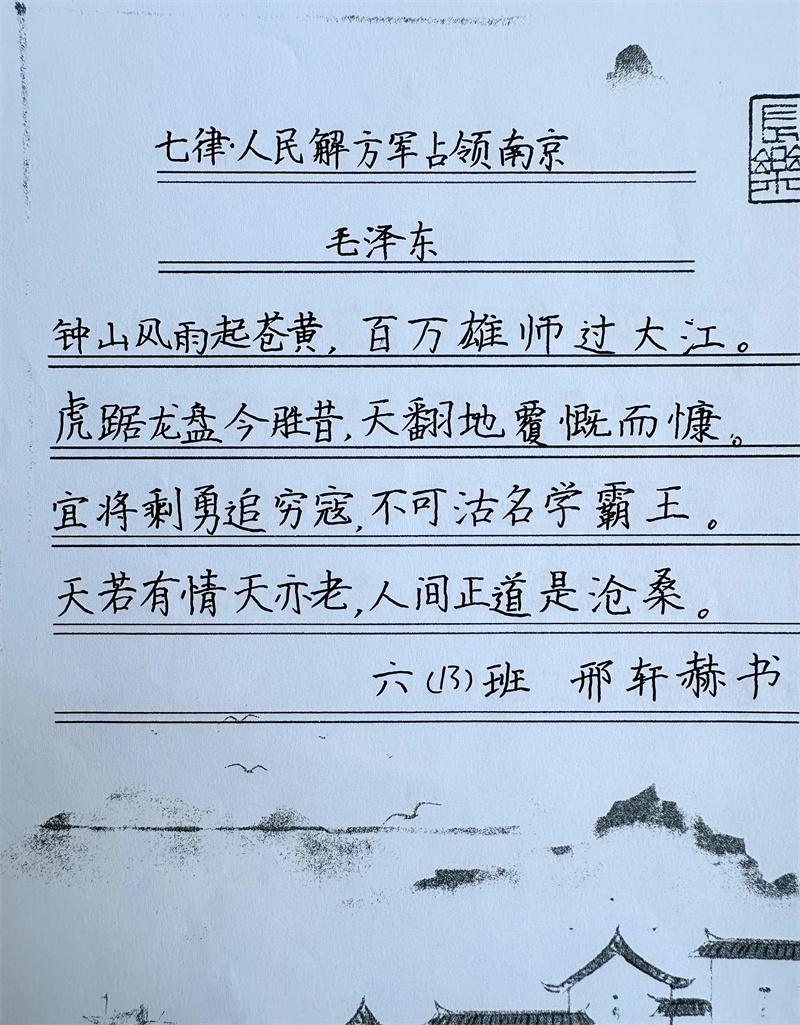 七律·人民解方军占领南京
毛泽东
钟山风雨起苍黄,百万雄师过大江。
虎踞龙盘今胜昔,天翻地覆慨而慷。
宜将剩勇追穷寇,不可沽名学霸王。
天若有情天亦老,人间正道是沧桑。
六(13)班 邢轩赫书